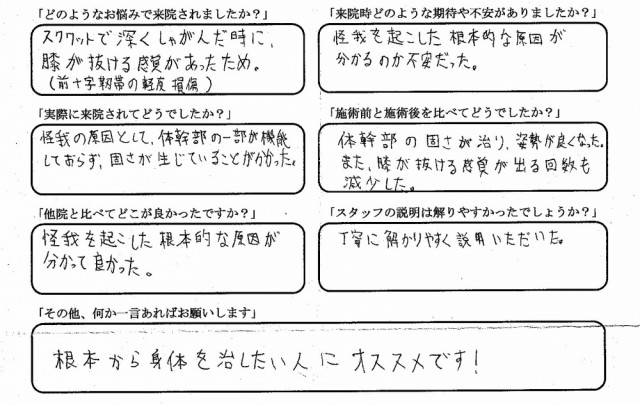 「どのようなお悩みで来院されましたか？」
スクワットで深くしゃがんだ時に、
膝が抜ける感覚があったため。
(前十字靭帯の軽度損傷)
「来院時どのような期待や不安がありましたか？」
怪我を起こした根本的な原因が
分かるのか不安だった。
「実際に来院されてどうでしたか？」
怪我の原因として、体幹部の一部が機能
しておらず、固さが生じていることが分かった。
「施術前と施術後を比べてどうでしたか？」
体幹部の固さが治り、姿勢が良くなった。
また、膝が抜ける感覚が出る回数も
減少した。
「他院と比べてどこが良かったですか？」
怪我を起こした根本的な原因が
分かって良かった。
「スタッフの説明は解りやすかったでしょうか？」
丁寧に解かりやすく説明いただいた。
「その他、何か一言あればお願いします」
根本から身体を治したい人にオススメです！